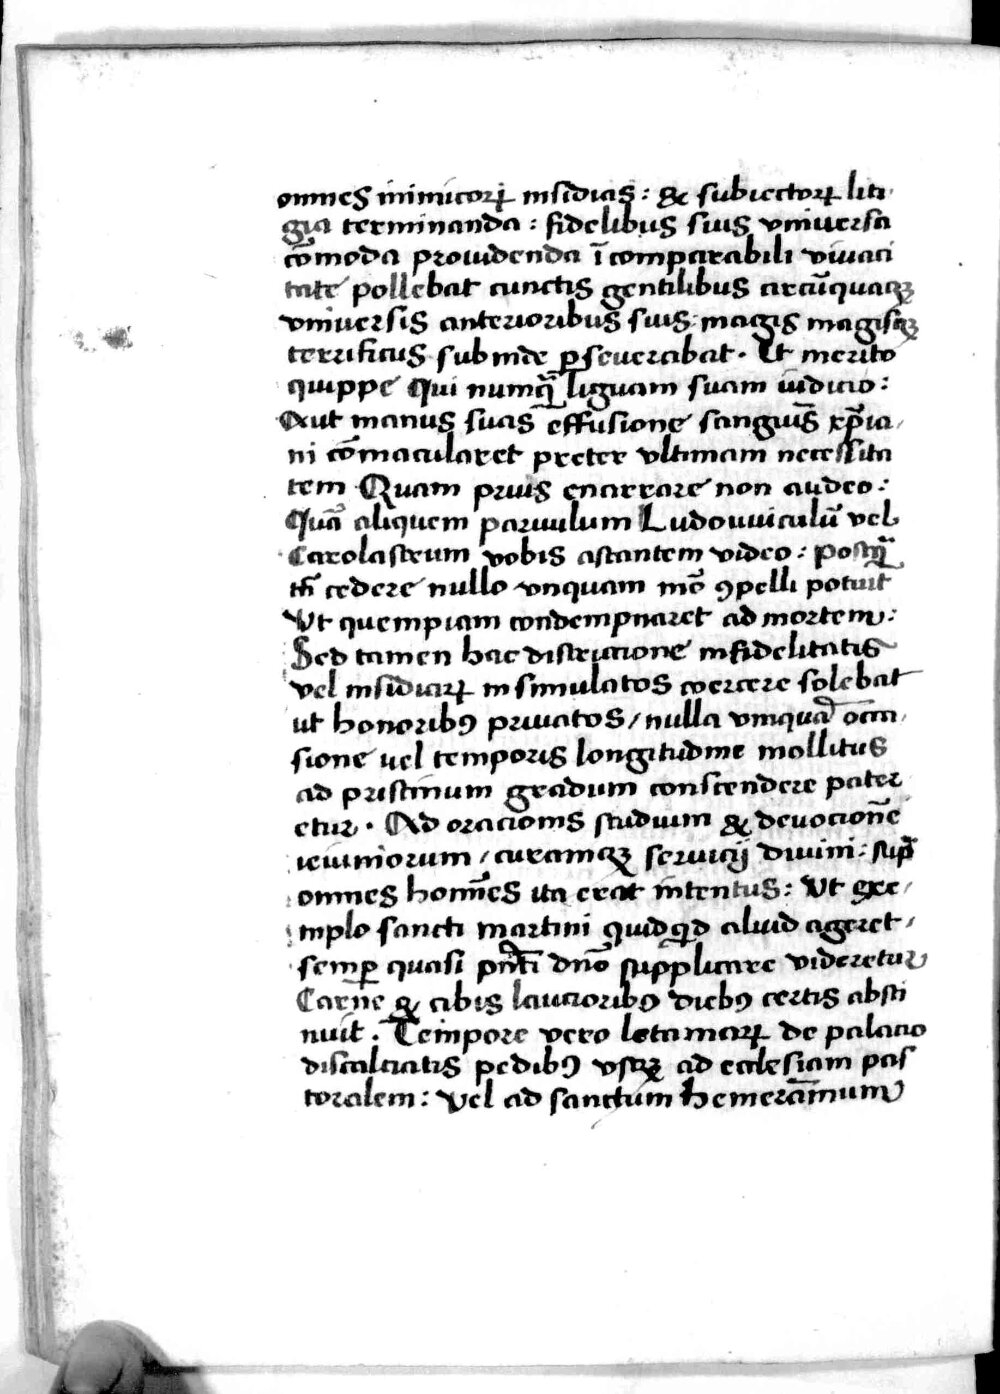 omnes inimicoꝝ insidias: & subiectoꝝ liti
gia terminanda: fidelibus suis vniuersa
cōmoda prouidenda īcomparabili viuaci
tate pollebat cunctis gentilibus circūquaqꝫ
vniuersis anterioribus suis: magis magisqꝫ
terrificus subinde ꝑseuerabat. Et merito
quippe Qui numqᷓ liguam suam iudicio:
Aut manus suas effusione sanguīs xp̄ia
ni cōmacularet preter vltimam necessita
tem Quam prius enarrare non audeo:
Quā aliquem paruulum Ludouuiculū vel
Carolastrum vobis astantem video: postqᷓ
tn̄ cedere nullo vnquam mō ꝯpelli potuit
Vt quempiam condempnaret ad mortem:
Sed tamen hac districcione infidelitatis
vel insidiaꝝ insimulatos coercere solebat
ut honoribꝰ priuatos / nulla vmquā occa
sione vel temporis longitudine mollitus
ad pristinum gradum conscendere pater
etur. Ad oracionis studium & deuocionē
ieiuniorum / curamqꝫ seruicij diuini: sup̄
omnes homīes ita erat intentus: Vt exe
mplo sancti martini quidqͥd aliud ageret
semꝑ quasi pn̄ti dn̄o supplicare videretur
Carne & cibis laucioribꝰ diebꝰ certis absti
nuit. Tempore vero letaniaꝝ de palacio
discalciatis pedibꝰ vsqꝫ ad ecclesiam pas
toralem: vel ad sanctum hemerāmum